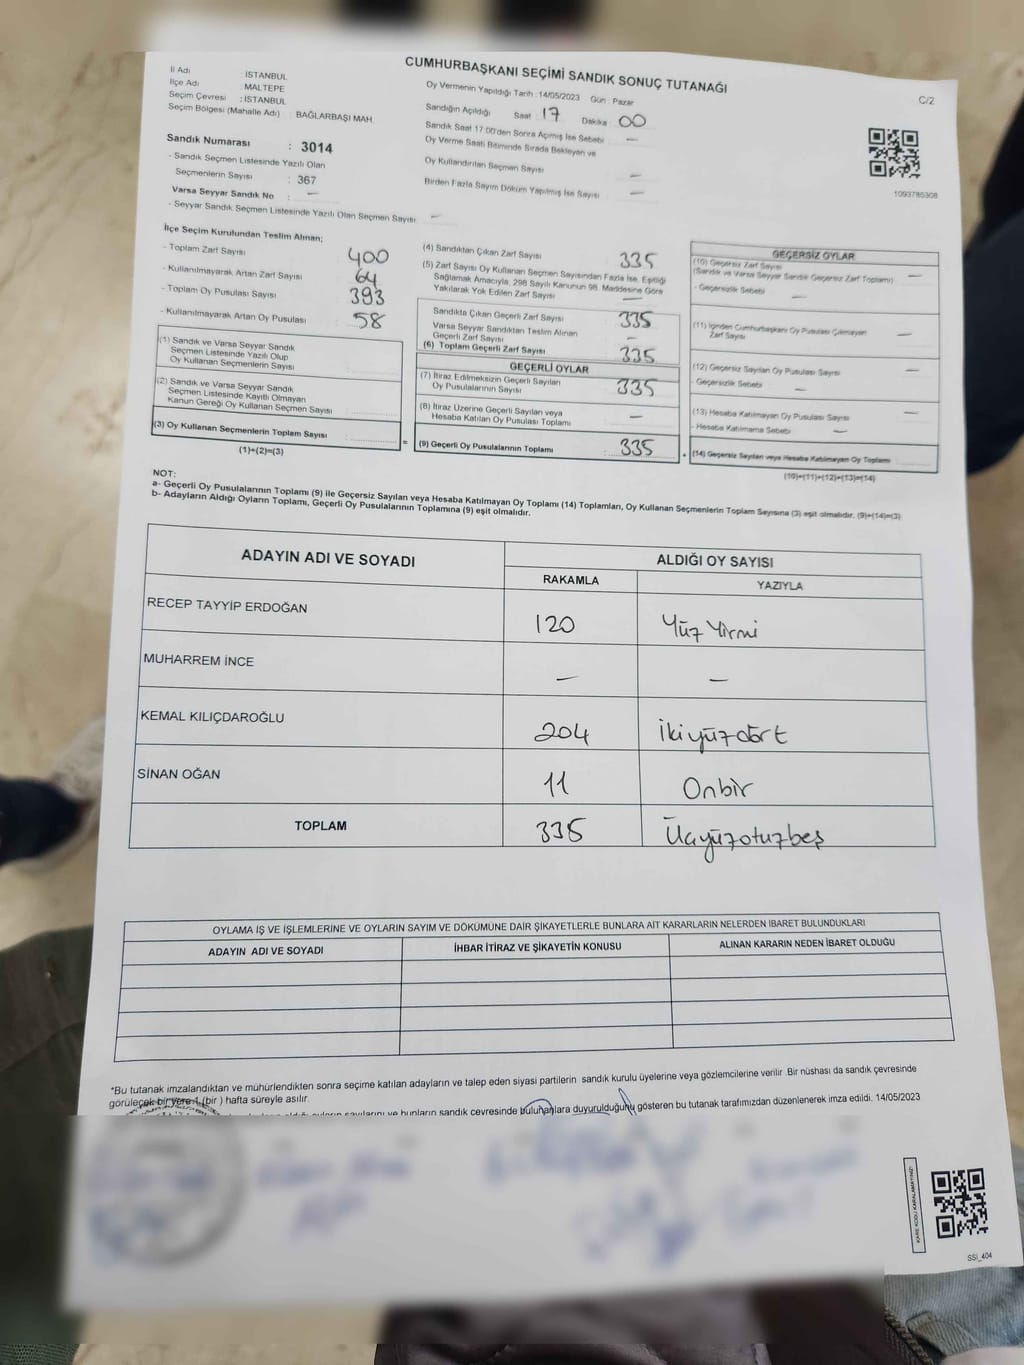 CUMHURBAŞKANI SEÇİMİ SANDIK SONUÇ TUTANAĞI
C/2
İl Adı İSTANBUL
İlçe Adı : MALTEPE
Seçim Çevresi : İSTANBUL
Seçim Bölgesi (Mahalle Adı) : BAĞLARBAŞI MAH.
Oy Vermenin Yapıldığı Tarih : 14/05/2023 Gün : Pazar
Sandığın Açıldığı Saat 17 Dakika 00
Sandık Saat 17:00'den Sonra Açılmış İse Sebebi —
Oy Verme Saati Bitiminde Sırada Bekleyen ve
Oy Kullandırılan Seçmen Sayısı —
Birden Fazla Sayım Döküm Yapılmış İse Sayısı —
1093785308
Sandık Numarası : 3014
- Sandık Seçmen Listesinde Yazılı Olan
Seçmenlerin Sayısı : 367
Varsa Seyyar Sandık No : —
- Seyyar Sandık Seçmen Listesinde Yazılı Olan Seçmen Sayısı —
İlçe Seçim Kurulundan Teslim Alınan;
- Toplam Zarf Sayısı 400
- Kullanılmayarak Artan Zarf Sayısı 64
- Toplam Oy Pusulası Sayısı 393
- Kullanılmayarak Artan Oy Pusulası 58
(1) Sandık ve Varsa Seyyar Sandık
Seçmen Listesinde Yazılı Olup
Oy Kullanan Seçmenlerin Sayısı
(2) Sandık ve Varsa Seyyar Sandık
Seçmen Listesinde Kayıtlı Olmayan
Kanun Gereği Oy Kullanan Seçmen Sayısı
(3) Oy Kullanan Seçmenlerin Toplam Sayısı :
(1)+(2)=(3)
(4) Sandıktan Çıkan Zarf Sayısı 335
(5) Zarf Sayısı Oy Kullanan Seçmen Sayısından Fazla İse, Eşitliği
Sağlamak Amacıyla, 298 Sayılı Kanunun 98. Maddesine Göre
Yakılarak Yok Edilen Zarf Sayısı —
Sandıkta Çıkan Geçerli Zarf Sayısı 335
Varsa Seyyar Sandıktan Teslim Alınan
Geçerli Zarf Sayısı —
(6) Toplam Geçerli Zarf Sayısı 335
GEÇERLİ OYLAR
(7) İtiraz Edilmeksizin Geçerli Sayılan
Oy Pusulalarının Sayısı 335
(8) İtiraz Üzerine Geçerli Sayılan veya
Hesaba Katılan Oy Pusulası Toplamı —
= (9) Geçerli Oy Pusulalarının Toplamı 335
GEÇERSİZ OYLAR
(10) Geçersiz Zarf Sayısı
(Sandık ve Varsa Seyyar Sandık Geçersiz Zarf Toplamı) —
- Geçersizlik Sebebi —
(11) İçinden Cumhurbaşkanı Oy Pusulası Çıkmayan
Zarf Sayısı —
(12) Geçersiz Sayılan Oy Pusulası Sayısı —
- Geçersizlik Sebebi —
(13) Hesaba Katılmayan Oy Pusulası Sayısı —
- Hesaba Katılmama Sebebi —
+ (14) Geçersiz Sayılan veya Hesaba Katılmayan Oy Toplamı
(10)+(11)+(12)+(13)=(14)
NOT:
a- Geçerli Oy Pusulalarının Toplamı (9) ile Geçersiz Sayılan veya Hesaba Katılmayan Oy Toplamı (14) Toplamları, Oy Kullanan Seçmenlerin Toplam Sayısına (3) eşit olmalıdır. (9)+(14)=(3)
b- Adayların Aldığı Oyların Toplamı, Geçerli Oy Pusulalarının Toplamına (9) eşit olmalıdır.
ADAYIN ADI VE SOYADI
ALDIĞI OY SAYISI
RAKAMLA YAZIYLA
RECEP TAYYİP ERDOĞAN 120 Yüz Yirmi
MUHARREM İNCE — —
KEMAL KILIÇDAROĞLU 204 İkiyüzdört
SİNAN OĞAN 11 Onbir
TOPLAM 335 Üçyüzotuzbeş
OYLAMA İŞ VE İŞLEMLERİNE VE OYLARIN SAYIM VE DÖKÜMÜNE DAİR ŞİKAYETLERLE BUNLARA AİT KARARLARIN NELERDEN İBARET BULUNDUKLARI
ADAYIN ADI VE SOYADI İHBAR İTİRAZ VE ŞİKAYETİN KONUSU ALINAN KARARIN NEDEN İBARET OLDUĞU
*Bu tutanak imzalandıktan ve mühürlendikten sonra seçime katılan adayların ve talep eden siyasi partilerin sandık kurulu üyelerine veya gözlemcilerine verilir .Bir nüshası da sandık çevresinde
görülecek bir yere 1 (bir ) hafta süreyle asılır.
sayılarını ve bunların sandık çevresinde bulunanlara duyurulduğunu gösteren bu tutanak tarafımızdan düzenlenerek imza edildi. 14/05/2023
KARE KODU KARALAMAYINIZ!
SSI_404